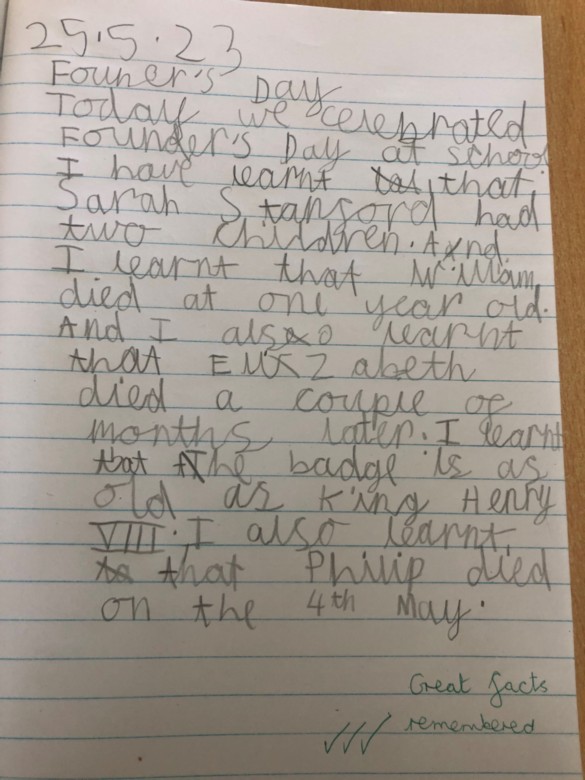 25.5.23
Founer's Day
Today we celebrated
Founder's Day at school
I have learnt that
Sarah Stansord had
two children. And
I learnt that William
died at one year old.
And I also learnt
that Elisabeth
died a couple of
months later. I learnt
that The badge is as
old as King Henry
VIII. I also learnt
that Philip died
on the 4th May.
Great facts
remembered